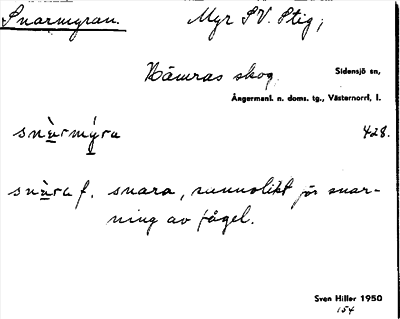 Snarmyran. Myr SV. Stig;
Bäckras skog. Sidensjö sn,
Ångermanl. n. doms. tg., Västernorrl, l.
snàrmýra 428.
snàra f. snara, runnolikt för snar-
ning av fågel.
Sven Hiller 1950
154